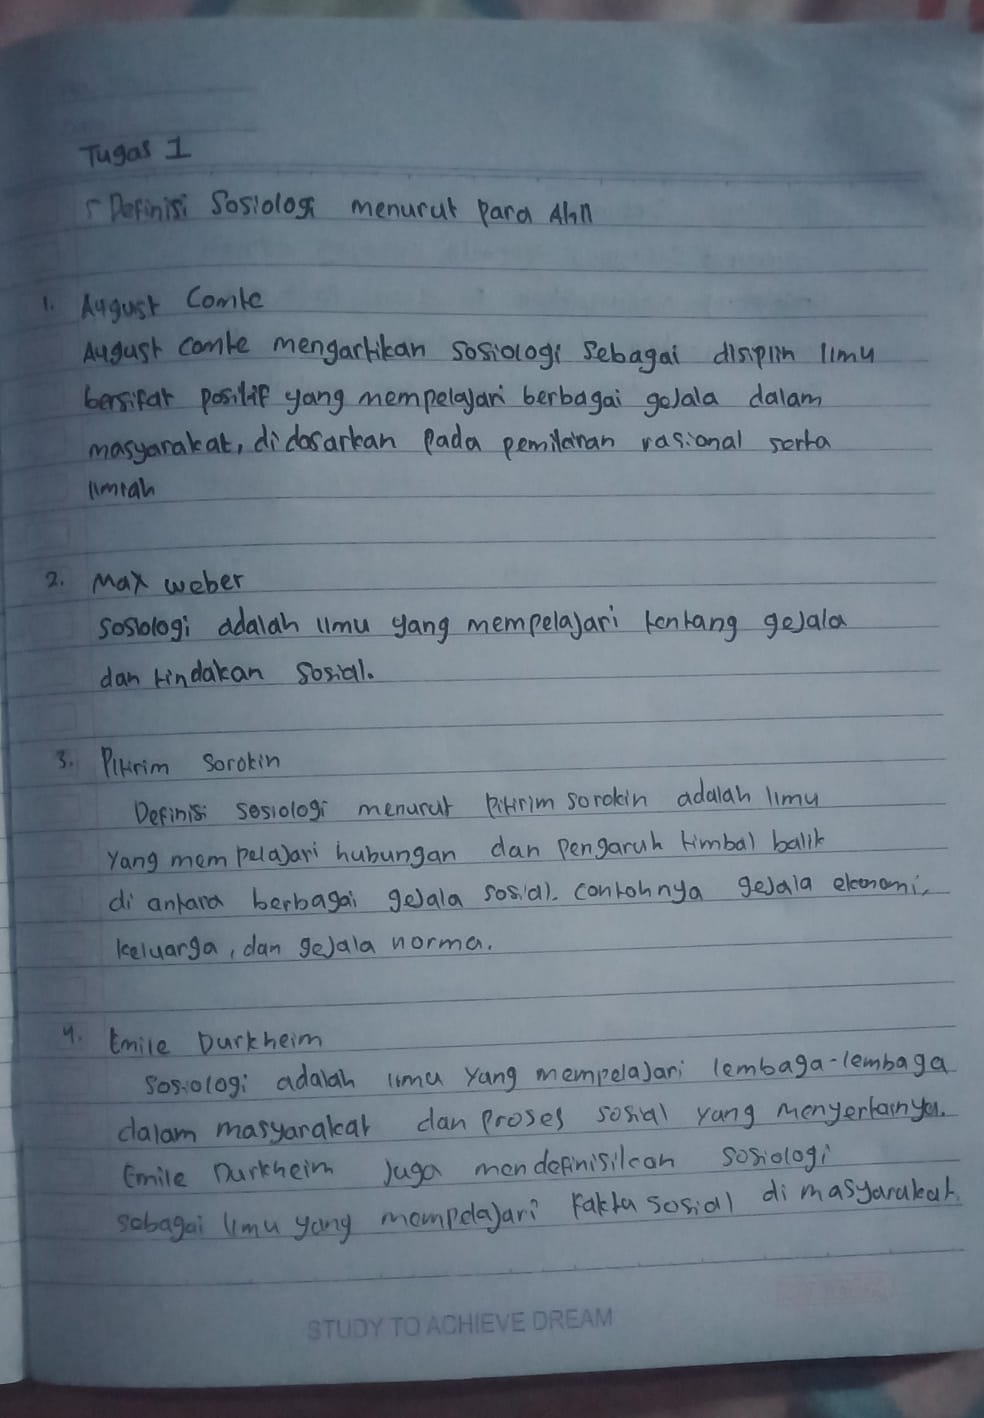 Tugas 1
5 Definisi Sosiologi menurut Para Ahli
1. August Comte
August Comte mengartikan sosiologi sebagai disiplin ilmu
bersifat positif yang mempelajari berbagai gejala dalam
masyarakat, didasarkan pada pemikiran rasional serta
ilmiah
2. Max weber
sosiologi adalah ilmu yang mempelajari tentang gejala
dan tindakan sosial.
3. Pitirim Sorokin
Definisi sosiologi menurut Pitirim sorokin adalah ilmu
yang mempelajari hubungan dan pengaruh timbal balik
di antara berbagai gejala sosial. contohnya gejala ekonomi,
keluarga, dan gejala norma.
4. Emile Durkheim
sosiologi adalah ilmu yang mempelajari lembaga-lembaga
dalam masyarakat dan proses sosial yang menyertainya.
Emile Durkheim juga mendefinisikan sosiologi
sebagai ilmu yang mempelajari fakta sosial di masyarakat.
STUDY TO ACHIEVE DREAM